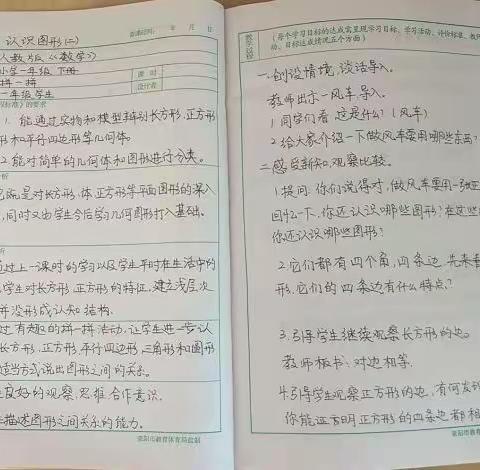 备课时间： 年 月 日
认识图形(二)
人教版《数学》
小学一年级 下册
拼一拼
课时
一年级 学生
设计者
标准》的要求
1. 能通过实物和模型辨别长方形,正方形
形和平行四边形等几何体。
2.能对简单的几何体和图形进行分类。
析
是对长方形,体,正方形等平面图形的深入
,同时又由学生今后学几何图形打入基础。
析
过上一课时的学习以及学生平时在生活中的
学生对长方形,正方形的特征,建立浅层次
并没形成认知结构.
过有趣的拼一拼活动,让学生进一步认
长方形,正方形,平行四边形,三角形和圆形
适当方式说出图形之间的关系。
良好的观察,思维,合作意识.
描述图形之间关系的能力。
荥阳市教育体育局监制
教学过程
(每个学习目标的达成需呈现学习目标、学习活动、评价标准、教
动、目标达成情况五个方面)
一.创设情境,谈话导入.
教师出示一风车,导入。
1同学们看,这是什么?(风车)
2给大家介绍一下做风车要用哪些东西?
二感受新知,观察比较。
1.提问:你们说得对,做风车要用一张正
回忆一下,你还认识哪些图形?在这些
你还认识哪些图形?
2.它们都有四个角,四条边,先来看
形,它们的四条边有什么特点?
3.引导学生继续观察长方形的边。
教师板书:对边相等.
4.引导学生观察正方形的边,有何发
你能证明正方形的四条边都相
荥阳市教育体育